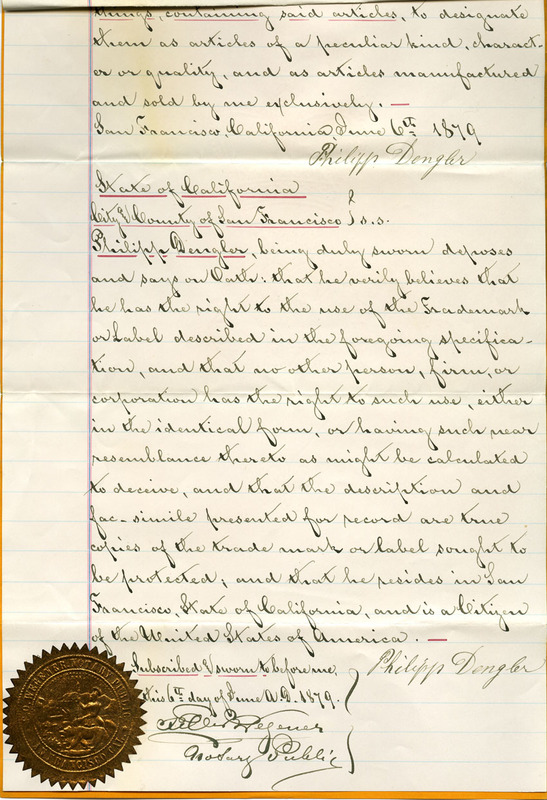 things, containing said articles, to designate
them as articles of a peculiar kind, charact-
er or quality, and as articles manufactured
and sold by me exclusively. —
San Francisco, California, June 6th 1879
Philipp Dengler
State of California
City & County of San Francisco } s.s.
Philipp Dengler, being duly sworn deposes
and says on Oath: that he verily believes that
he has the right to the use of the Trademark
or Label described in the foregoing specifica-
tion, and that no other person, firm, or
corporation has the right to such use, either
in the identical form, or having such near
resemblance thereto as might be calculated
to deceive, and that the description and
fac-simile presented for record are true
copies of the trade mark or Label sought to
be protected; and that he resides in San
Francisco, State of California, and is a Citizen
of the United States of America. —
Subscribed & sworn to before me
this 6th day of June A.D. 1879.
Philipp Dengler
Wegener
Notary Public